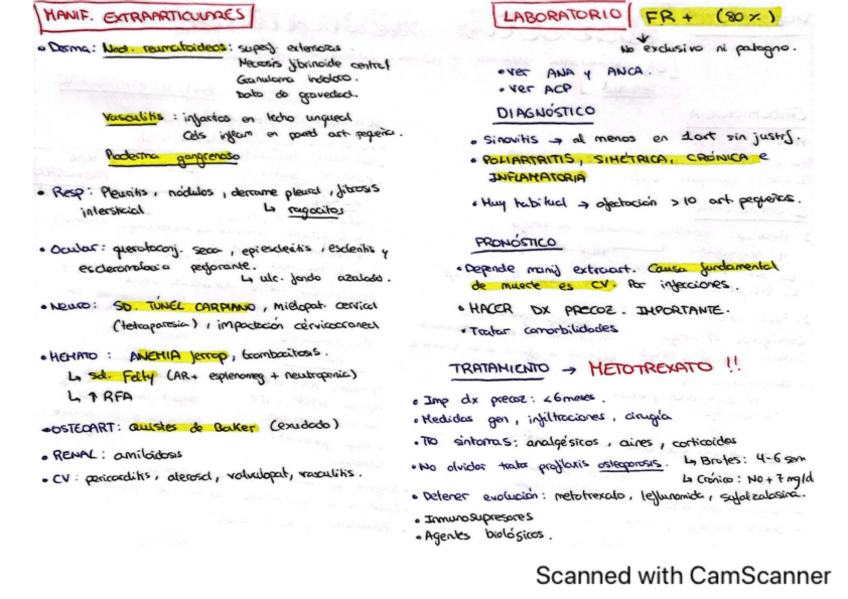 MANIF. EXTRAARTICULARES
• Derma: Nod. reumatoideos: superf. extensoras
Necosis fibrinoide central
Granuloma indoloro.
Dato de gravedad.
Vasculitis : infartos en lecho ungueal
Cels inflam en pared art. pequeña.
Pioderma gangrenoso
• Resp: Pleuritis, nódulos, derrame pleural, fibrosis
intersticial ↳ ragocitos
• Ocular: queratoconj. seca, epiescleritis, escleritis y
escleromalacia perforante.
↳ ulc. fondo azulado.
• Neuro: SD. TÚNEL CARPIANO, mielopat. cervical
(tetraparesia), impactación cérvicocraneal
• HEMATO : ANEMIA ferrop, trombocitosis.
↳ sd. Felty (AR + esplenomeg + neutropenia)
↳ ↑ RFA
• OSTEOART: quistes de Baker (exudado)
• RENAL: amiloidosis
• CV: pericarditis, ateroscl, valvulopat, vasculitis.
LABORATORIO FR + (80%)
↓
No exclusivo ni patogno.
• Ver ANA y ANCA.
• Ver ACP
DIAGNÓSTICO
• Sinovitis → al menos en 1 art sin justif.
• POLIARTRITIS, SIMÉTRICA, CRÓNICA e
INFLAMATORIA
• Muy habitual → afectación >10 art. pequeñas.
PRONÓSTICO
• Depende manif extraart. Causa fundamental
de muerte es CV. Por infecciones.
• HACER DX PRECOZ. IMPORTANTE.
• Tratar comorbilidades
TRATAMIENTO → METOTREXATO !!
• Imp dx precoz: <6 meses.
• Medidas gen, infiltraciones, cirugía
• TTO síntomas: analgésicos, aines, corticoides
↳ Brotes: 4-6 sem
↳ Crónico: No + 7 mg/d
• No olvidar tratar profilaxis osteoporosis.
• Detener evolución: metotrexato, leflunomida, sulfazalacina.
• Inmunosupresores
• Agentes biológicos.
Scanned with CamScanner